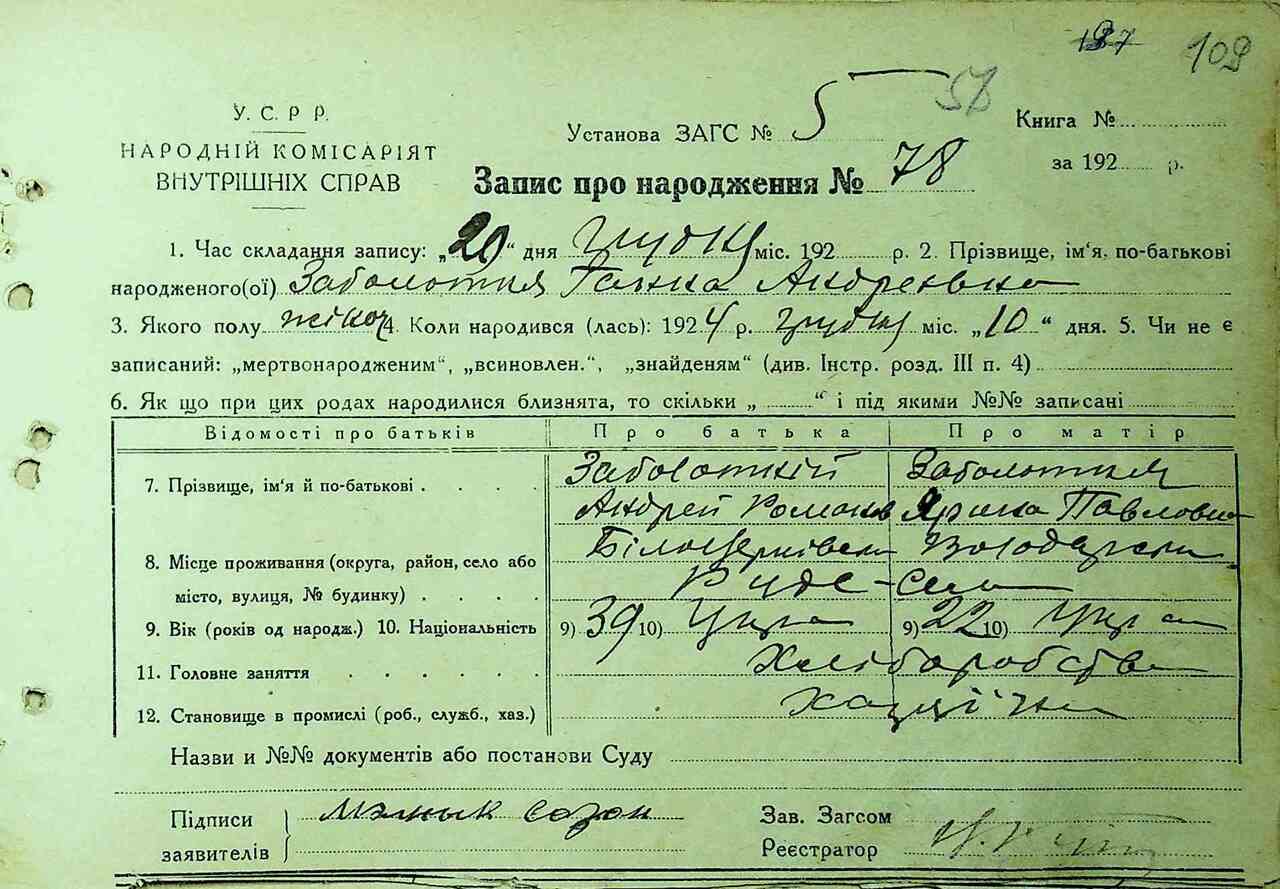 127 109
58
У. С. Р Р.
НАРОДНІЙ КОМІСАРІЯТ
ВНУТРІШНІХ СПРАВ
Установа ЗАГС № 5
Книга №
Запис про народження № 78
за 192 р.
1. Час складання запису: „20“ дня грудня міс. 192 р. 2. Прізвище, ім'я, по-батькові
народженого(ої) Заболотня Ганна Андреївна
3. Якого полу жіноч 4. Коли народився (лась): 1924 р. грудня міс. „10“ дня. 5. Чи не є
записаний: „мертвонародженим“, „всиновлен.“, „знайденям“ (див. Інстр. розд. III п. 4)
6. Як що при цих родах народилися близнята, то скільки „ “ і під якими №№ записані
Відомості про батьків Про батька Про матір
7. Прізвище, ім'я й по-батькові Заболотній Заболотня
Андрей Романов Ярина Павловна
8. Місце проживання (округа, район, село або Білоцерківськ Володарськ
місто, вулиця, № будинку) Руде-село
9. Вік (років од народж.) 10. Національність 9) 39 10) Укра 9) 22 10) Укра
11. Головне заняття Хліборобство
12. Становище в промислі (роб., служб., хаз.)
Назви и №№ документів або постанови Суду
Підписи
заявителів
созон
Зав. Загсом
Реєстратор